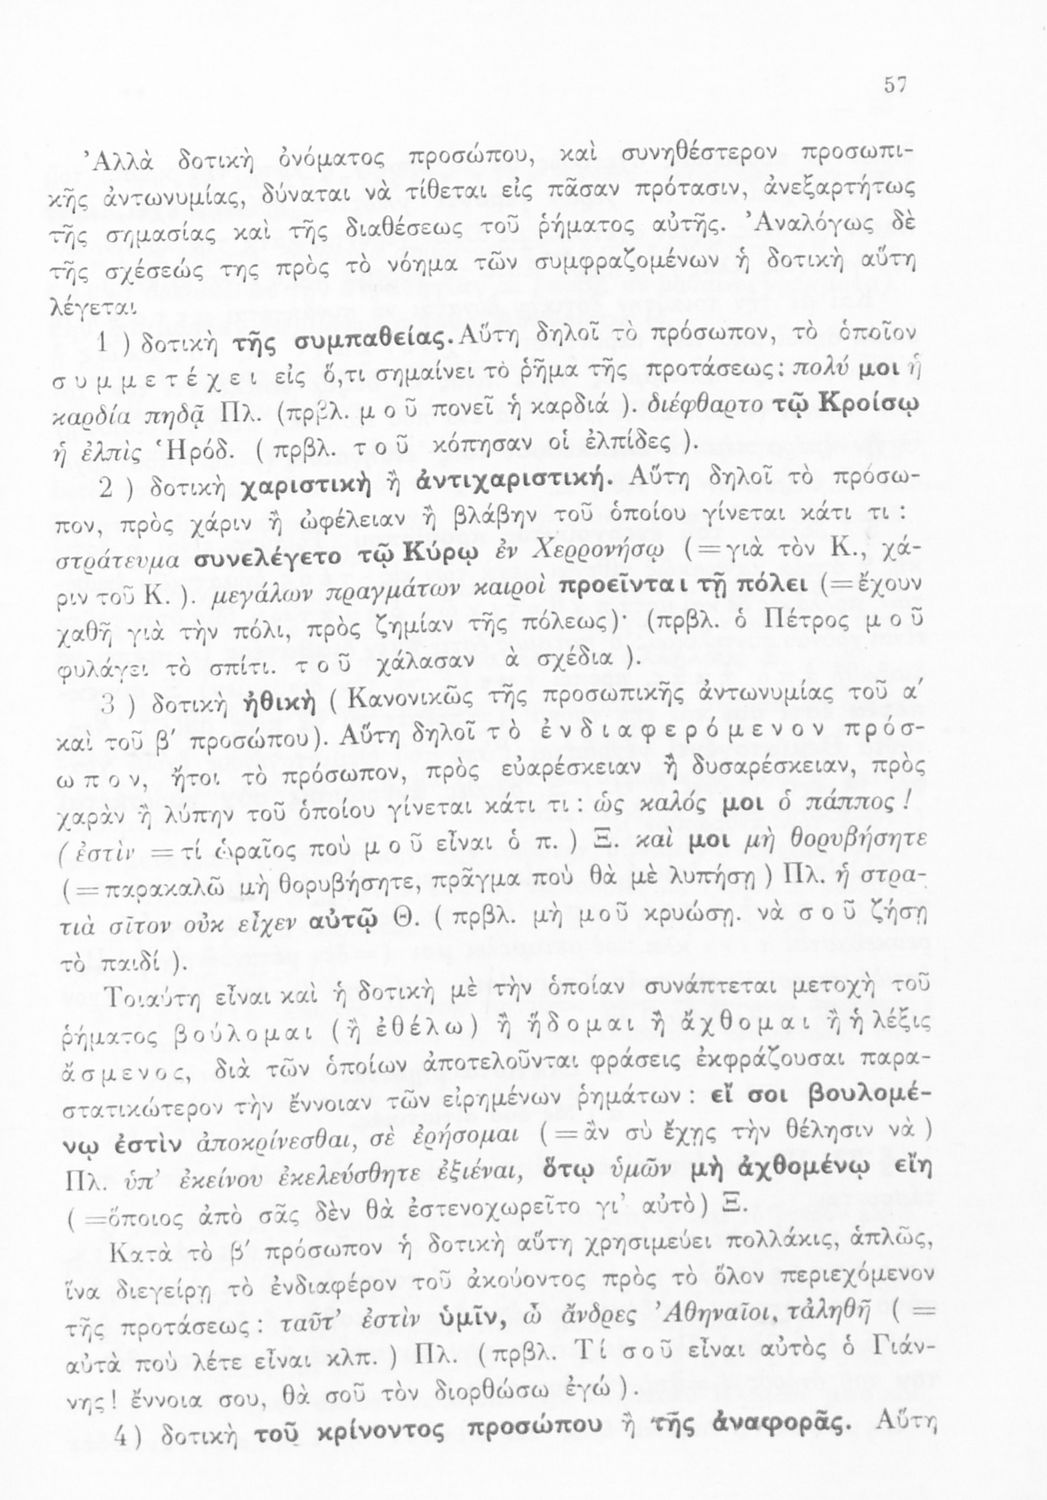 57
Ἀλλὰ δοτικὴ ὀνόματος προσώπου, καὶ συνηθέστερον προσωπι-
κῆς ἀντωνυμίας, δύναται νὰ τίθεται εἰς πᾶσαν πρότασιν, ἀνεξαρτήτως
τῆς σημασίας καὶ τῆς διαθέσεως τοῦ ῥήματος αὐτῆς. Ἀναλόγως δὲ
τῆς σχέσεώς της πρὸς τὸ νόημα τῶν συμφραζομένων ἡ δοτικὴ αὕτη
λέγεται
1 ) δοτικὴ τῆς συμπαθείας. Αὕτη δηλοῖ τὸ πρόσωπον, τὸ ὁποῖον
συμμετέχει εἰς ὅ,τι σημαίνει τὸ ῥῆμα τῆς προτάσεως: πολύ μοι ἡ
καρδία πηδᾷ Πλ. (πρβλ. μοῦ πονεῖ ἡ καρδιά ). διέφθαρτο τῷ Κροίσῳ
ἡ ἐλπὶς Ἡρόδ. ( πρβλ. τοῦ κόπησαν οἱ ἐλπίδες ).
2 ) δοτικὴ χαριστικὴ ἢ ἀντιχαριστική. Αὕτη δηλοῖ τὸ πρόσω-
πον, πρὸς χάριν ἢ ὠφέλειαν ἢ βλάβην τοῦ ὁποίου γίνεται κάτι τι :
στράτευμα συνελέγετο τῷ Κύρῳ ἐν Χερρονήσῳ ( = γιὰ τὸν Κ., χά-
ριν τοῦ Κ. ). μεγάλων πραγμάτων καιροὶ προεῖνται τῇ πόλει (= ἔχουν
χαθῆ γιὰ τὴν πόλι, πρὸς ζημίαν τῆς πόλεως)· (πρβλ. ὁ Πέτρος μοῦ
φυλάγει τὸ σπίτι. τοῦ χάλασαν ὰ σχέδια ).
3 ) δοτικὴ ἠθικὴ ( Κανονικῶς τῆς προσωπικῆς ἀντωνυμίας τοῦ α′
καὶ τοῦ β′ προσώπου). Αὕτη δηλοῖ τὸ ἐνδιαφερόμενον πρόσ-
ωπον, ἤτοι τὸ πρόσωπον, πρὸς εὐαρέσκειαν ἢ δυσαρέσκειαν, πρὸς
χαρὰν ἢ λύπην τοῦ ὁποίου γίνεται κάτι τι : ὡς καλός μοι ὁ πάππος !
( ἐστὶν = τί ὡραῖος ποὺ μοῦ εἶναι ὁ π. ) Ξ. καὶ μοι μὴ θορυβήσητε
( = παρακαλῶ μὴ θορυβήσητε, πρᾶγμα ποὺ θὰ μὲ λυπήσῃ ) Πλ. ἡ στρα-
τιὰ σῖτον οὐκ εἶχεν αὐτῷ Θ. ( πρβλ. μὴ μοῦ κρυώσῃ. νὰ σοῦ ζήσῃ
τὸ παιδί ).
Τοιαύτη εἶναι καὶ ἡ δοτικὴ μὲ τὴν ὁποίαν συνάπτεται μετοχὴ τοῦ
ῥήματος βούλομαι (ἢ ἐθέλω) ἢ ἥδομαι ἢ ἄχθομαι ἢ ἡ λέξις
ἄσμενος, διὰ τῶν ὁποίων ἀποτελοῦνται φράσεις ἐκφράζουσαι παρα-
στατικώτερον τὴν ἔννοιαν τῶν εἰρημένων ῥημάτων : εἴ σοι βουλομέ-
νῳ ἐστὶν ἀποκρίνεσθαι, σὲ ἐρήσομαι ( = ἂν σὺ ἔχῃς τὴν θέλησιν νὰ )
Πλ. ὑπ᾽ ἐκείνου ἐκελεύσθητε ἐξιέναι, ὅτῳ ὑμῶν μὴ ἀχθομένῳ εἴη
( =ὅποιος ἀπὸ σᾶς δὲν θὰ ἐστενοχωρεῖτο γι᾽ αὐτὸ) Ξ.
Κατὰ τὸ β′ πρόσωπον ἡ δοτικὴ αὕτη χρησιμεύει πολλάκις, ἁπλῶς,
ἵνα διεγείρῃ τὸ ἐνδιαφέρον τοῦ ἀκούοντος πρὸς τὸ ὅλον περιεχόμενον
τῆς προτάσεως : ταῦτ᾽ ἐστὶν ὑμῖν, ὦ ἄνδρες Ἀθηναῖοι, τἀληθῆ ( =
αὐτὰ ποὺ λέτε εἶναι κλπ. ) Πλ. (πρβλ. Τί σοῦ εἶναι αὐτὸς ὁ Γιάν-
νης! ἔννοια σου, θὰ σοῦ τὸν διορθώσω ἐγώ ).
4 ) δοτικὴ τοῦ κρίνοντος προσώπου ἢ τῆς ἀναφορᾶς. Αὕτη